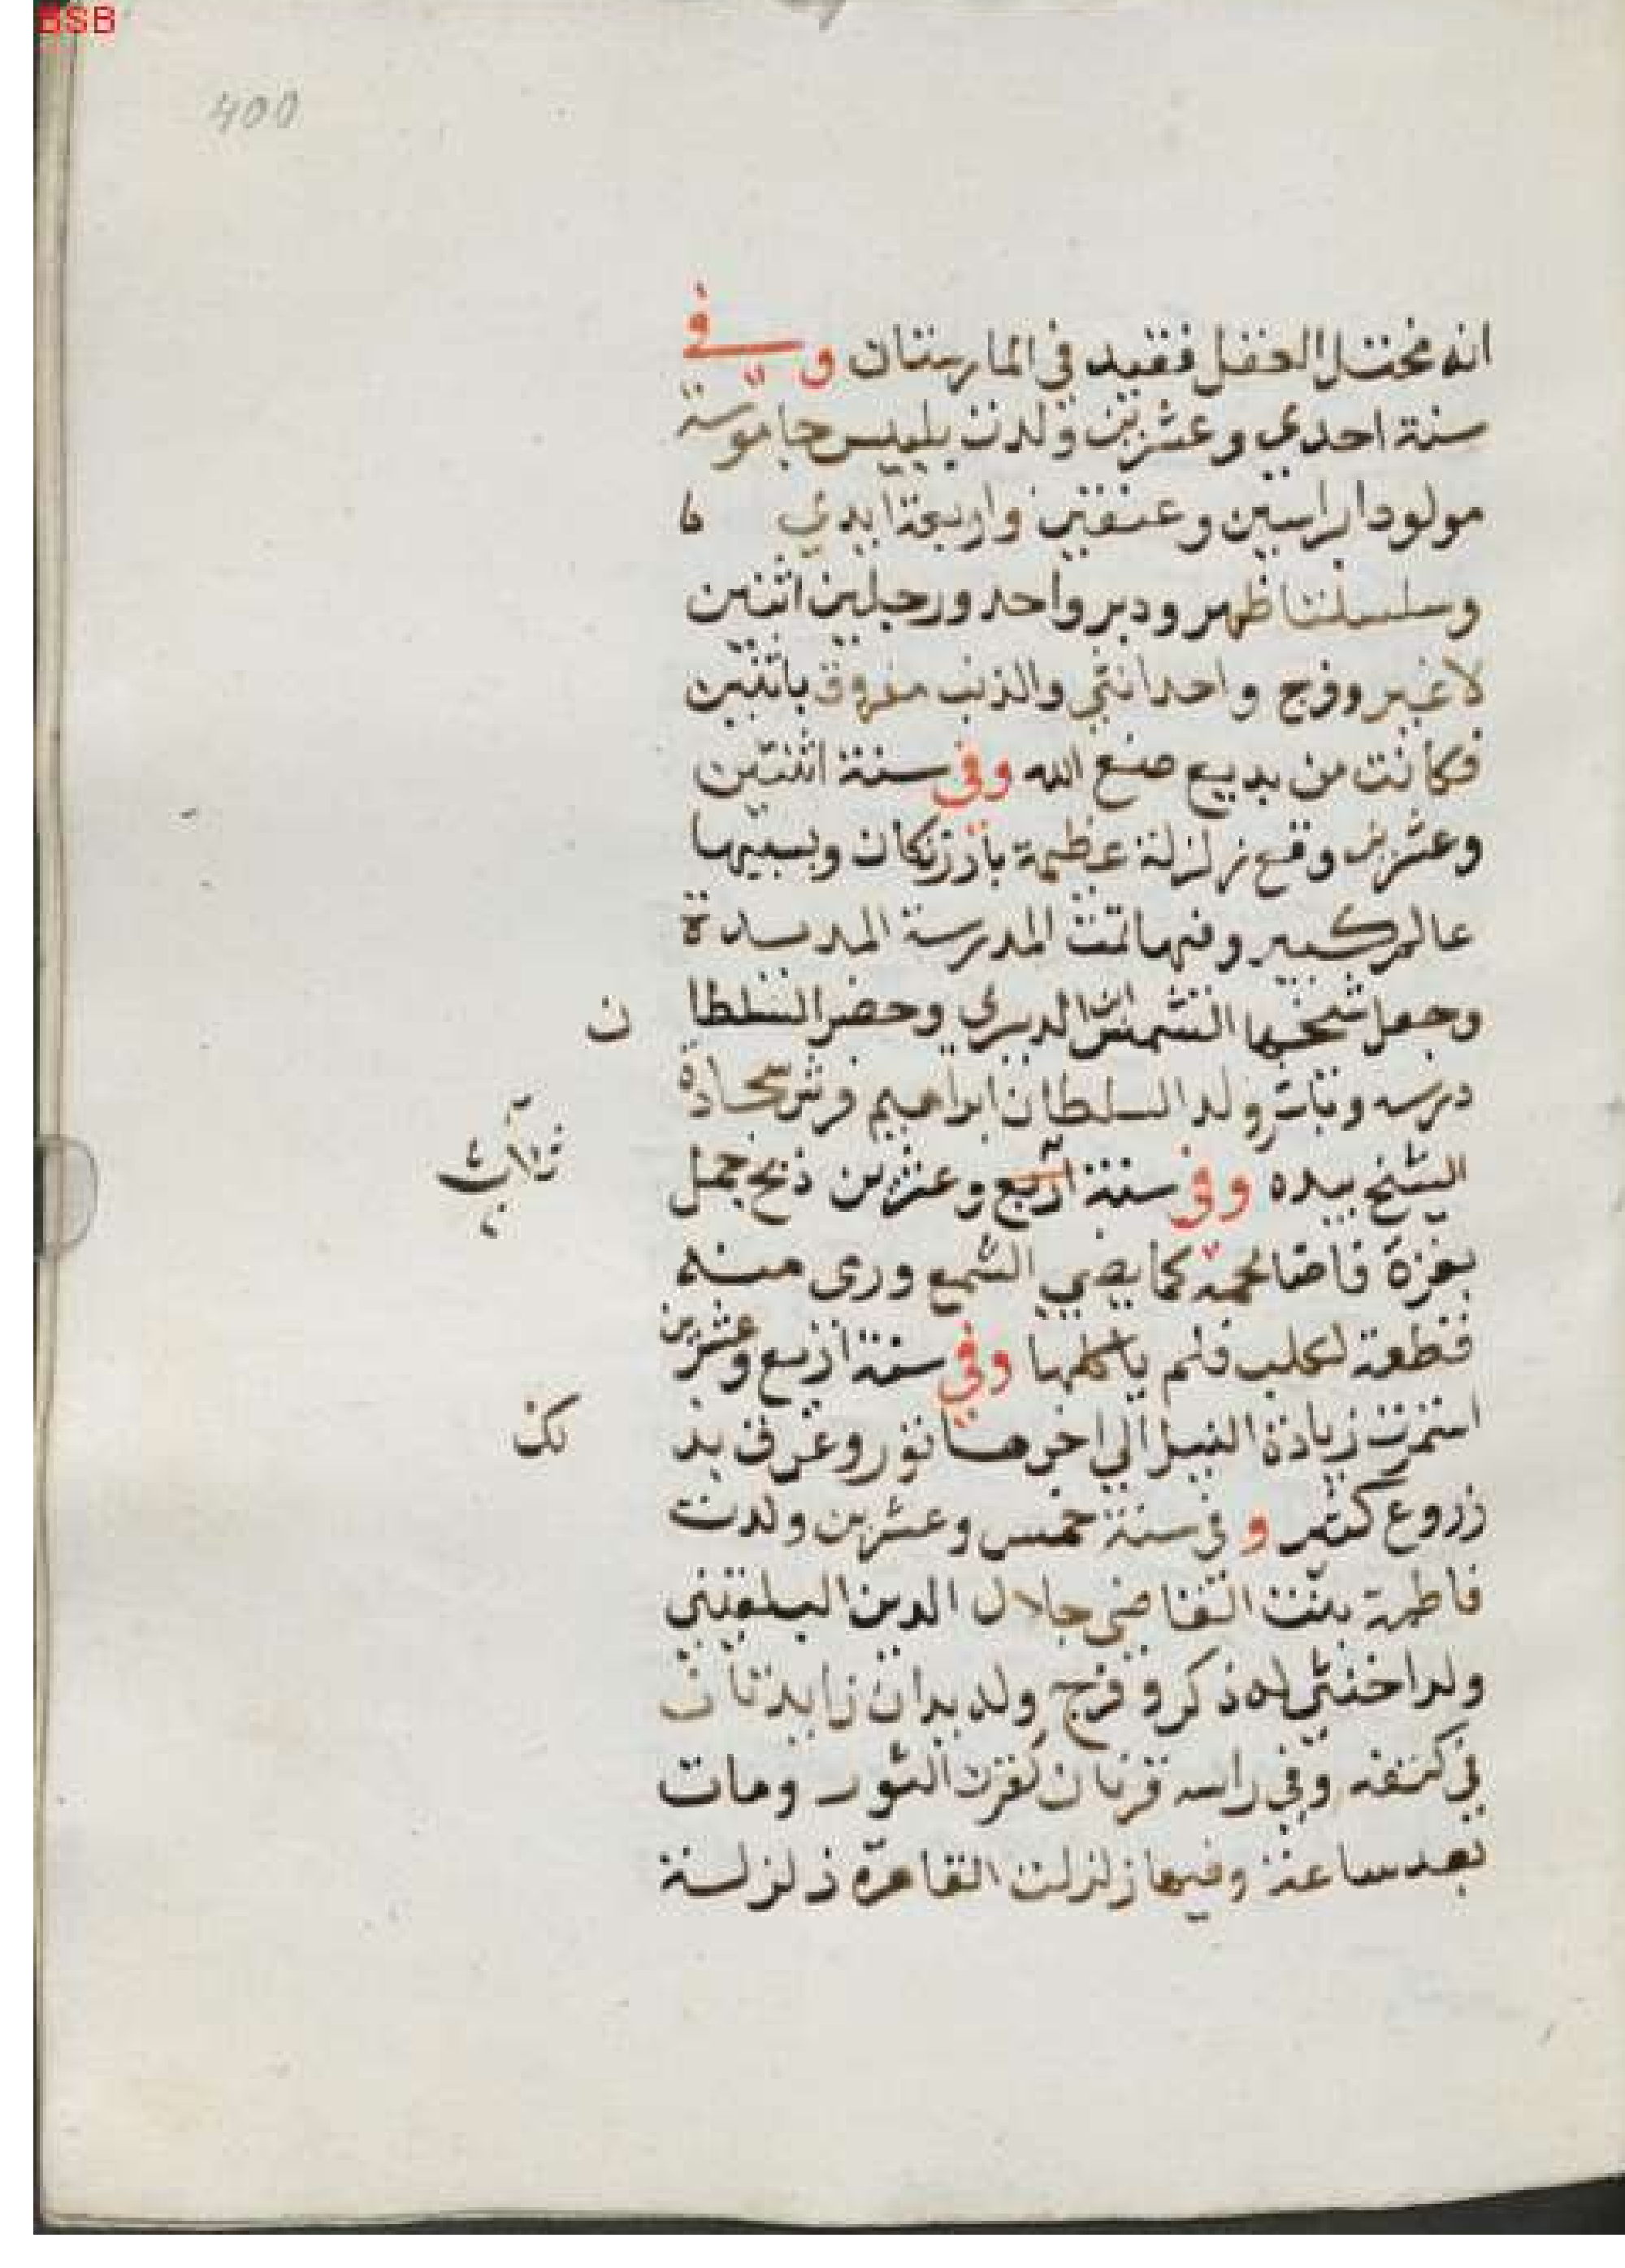 BSB
400
انه مختل العقل فقيد في المارستان وفي
سنة احدي وعشرين ولدت ببلبيس جاموسة
مولودا براسين وعنقين واربعة ايدي
وسلسلتا ظهر ودبر واحد ورجلين اثنين
لا غير وفرج واحد انثي والذنب مفروق باثنين
فكانت من بديع صنع الله وفي سنة اثنتين
وعشرين وقع زلزلة عظيمة بارزنكان وبسببها
عالم كبير وفيها تمت المدرسة المديدة
وجعل شيخها الشمس ابن الديري وحضر السلطان
درسه وبات ولد السلطان ابراهيم فرش سجادة
الشيخ بيده وفي سنة اربع وعشرين ذبح جمل
بغزة فاضا لحمه كما يضي الشمع ورى منه
قطعة لكلب فلم ياكلها وفي سنة اربع وعشرين
استمرت زيادة النيل الي اخر هاتور وغرق بذلك
زروع كثير وفي سنة خمس وعشرين ولدت
فاطمة بنت القاضي جلال الدين البلقيني
ولدا خنثي له ذكر وفرج وله يدان زايدتان
في كتفه وفي راسه قرنان كقرن الثور ومات
بعد ساعة وفيها زلزلت القاهرة زلزلة